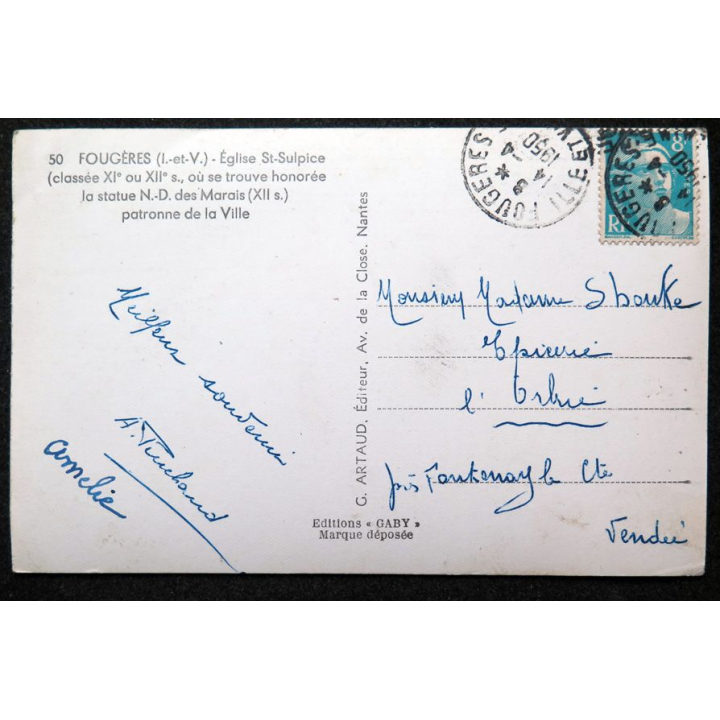 50 FOUGÈRES (I.-et-V.) - Église St-Sulpice
(classée XIᵉ ou XIIᵉ s., où se trouve honorée
la statue N.-D. des Marais (XII s.)
patronne de la Ville
FOUGERES ILLE ET V
8 *
14 -4
1950
8
RF
Monsieur Madame
Epicerie
l'Orbrie
près Fontenay le Cte
Vendée
Meilleur souvenir
Amelie
G. ARTAUD, Éditeur, Av. de la Close, Nantes
Editions « GABY »
Marque déposée